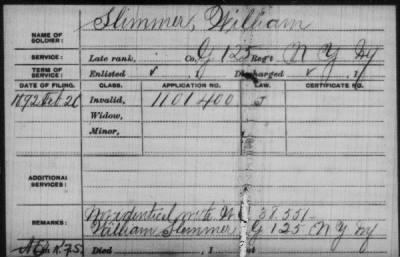 Slimmer, William
NAME OF SOLDIER:
SERVICE: Late rank, Co. G 125 Reg't N Y Inf
TERM OF SERVICE: Enlisted , 1 Discharged , 1
DATE OF FILING. CLASS. APPLICATION NO. LAW. CERTIFICATE NO.
1892 Feb. 20 Invalid, 1101400 J
Widow,
Minor,
ADDITIONAL SERVICES:
REMARKS: identical with 38.551
William Slimmer, G 125 N Y Inf
Died , 1 at